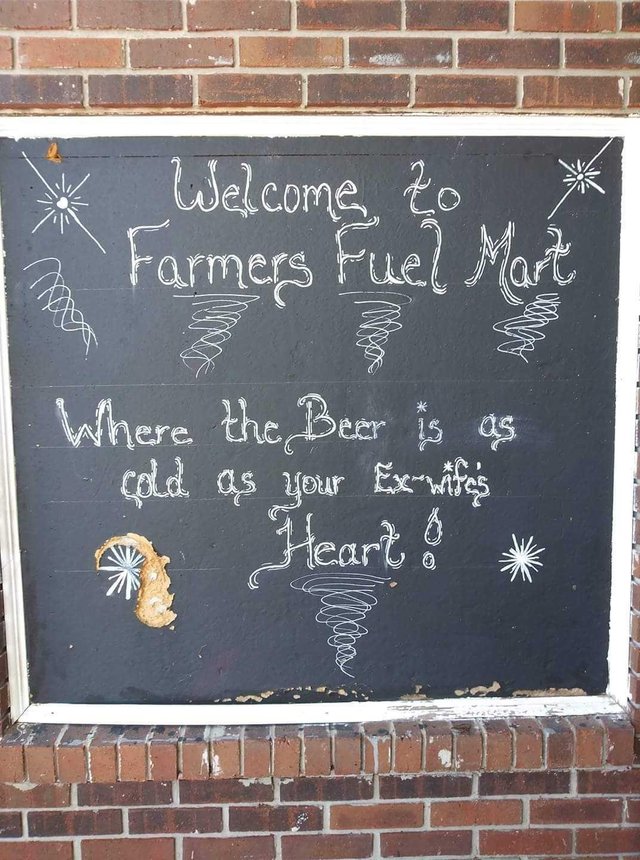 Welcome to
Farmers Fuel Mart
Where the Beer is as
cold as your Ex-wife's
Heart!